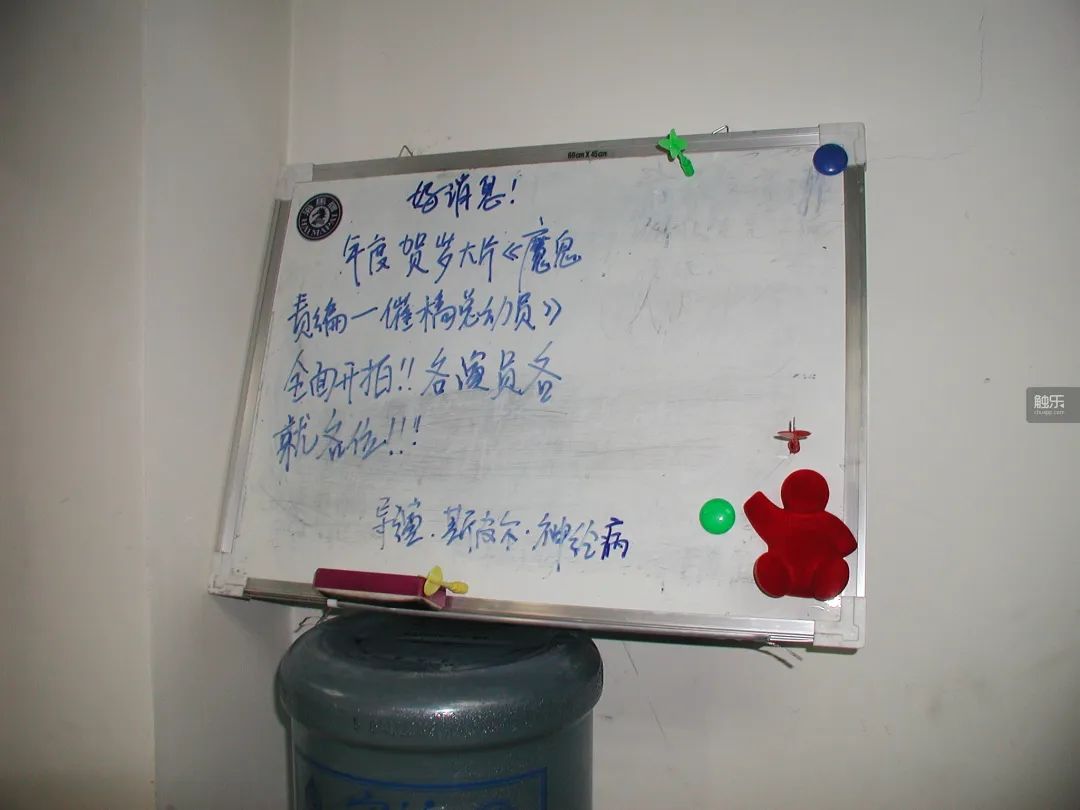 60cm X 45cm
好消息!
年度贺岁大片《魔鬼
责编一催稿总动员》
全面开拍!! 各演员各
就各位!!!
导演·斯皮尔·神经病
触乐
chuapp.com